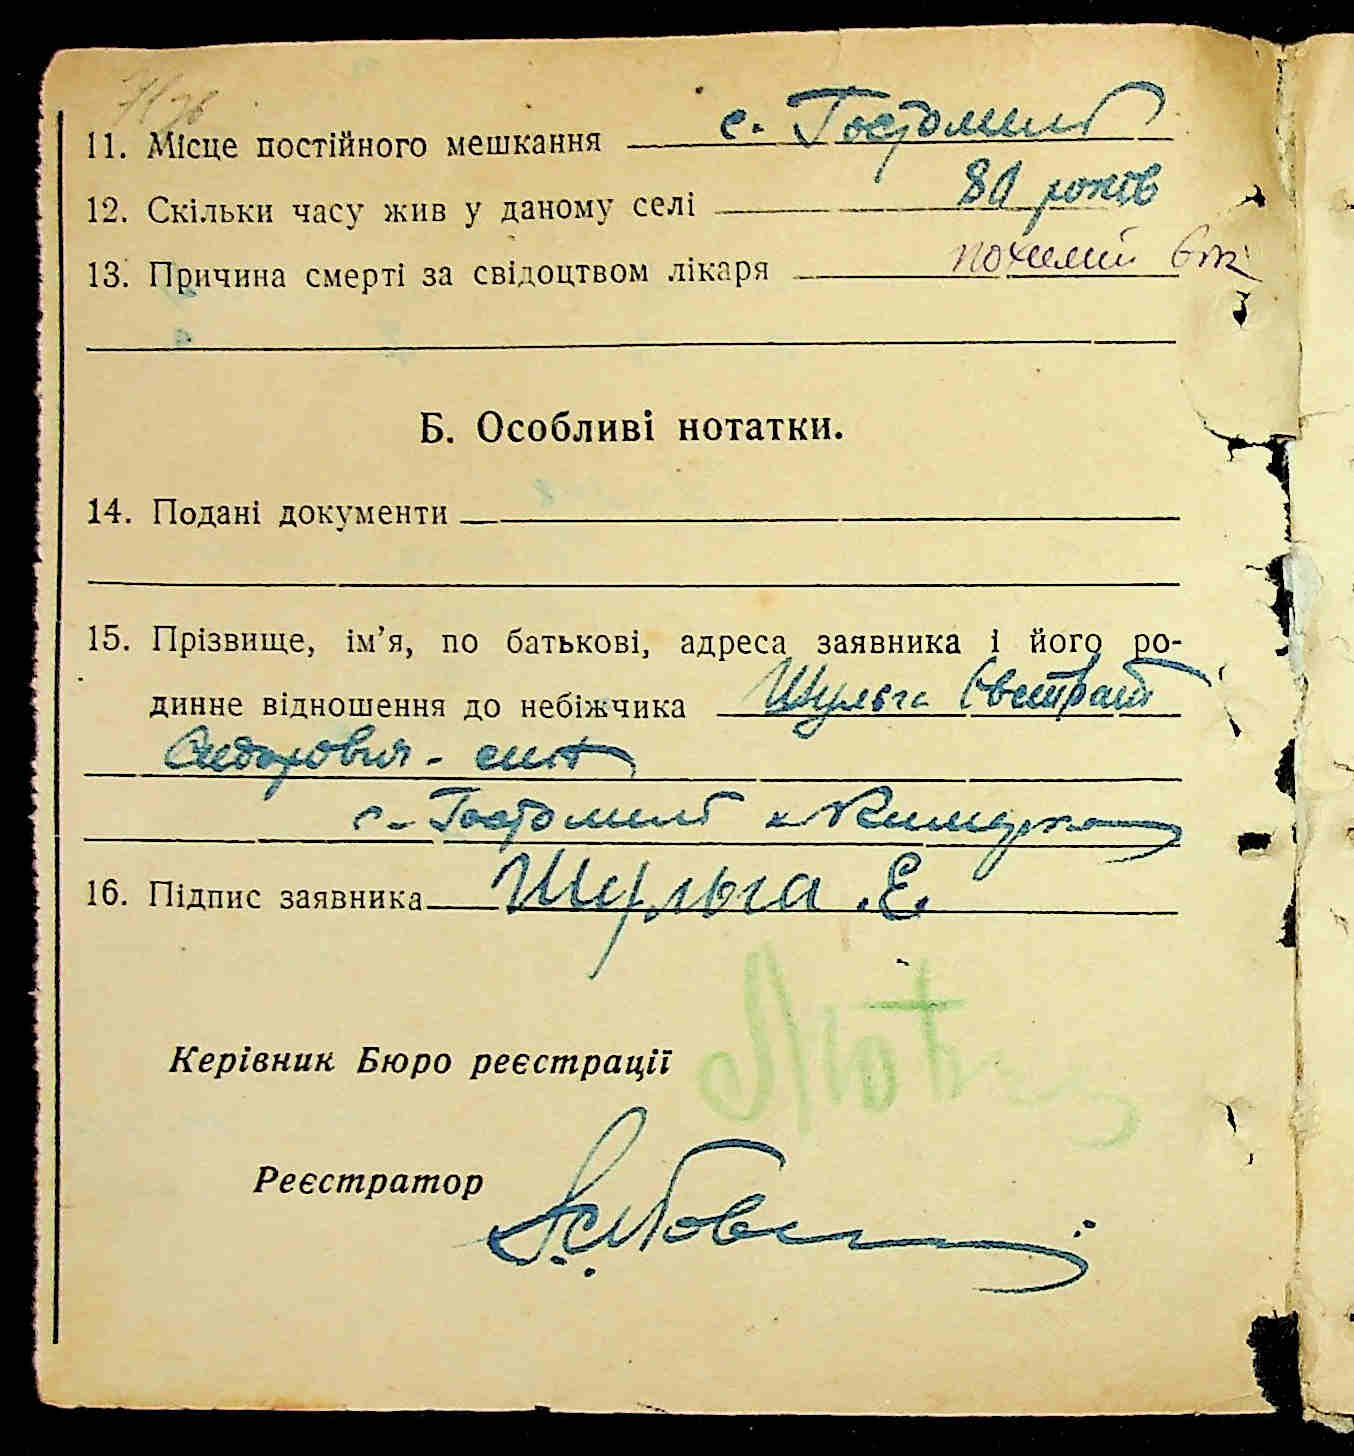 11. Місце постійного мешкання с. Гостомель
12. Скільки часу жив у даному селі 80 років
13. Причина смерті за свідоцтвом лікаря похилий вік
Б. Особливі нотатки.
14. Подані документи
15. Прізвище, ім’я, по батькові, адреса заявника і його ро-
динне відношення до небіжчика Шульга Євстрат
Сидорович - син
с. Гостомель
16. Підпис заявника Шульга .Е.
Керівник Бюро реєстрації
Реєстратор